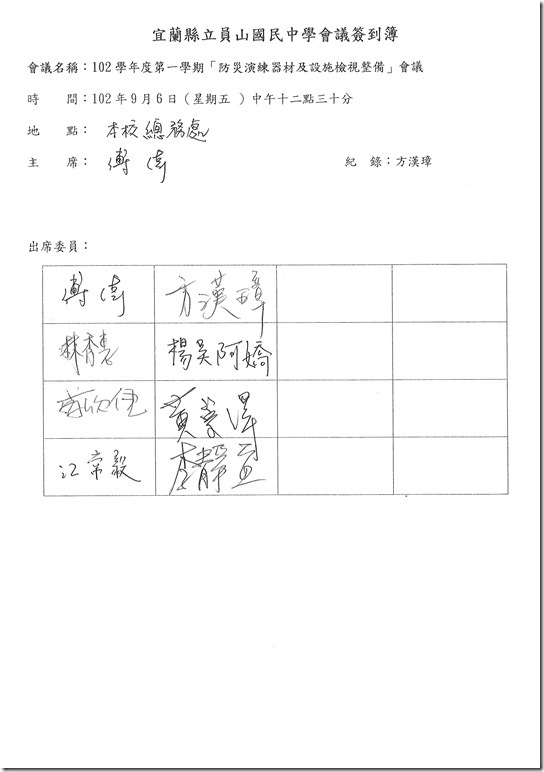 宜蘭縣立員山國民中學會議簽到簿
會議名稱：102 學年度第一學期「防災演練器材及設施檢視整備」會議
時　　間：102 年 9 月 6 日（星期五 ）中午十二點三十分
地　　點： 本校總務處
主　　席： 傅
紀　錄：方漢璋
出席委員：
傅　方漢璋
林香　楊吳阿嬌
欣　黃
江常毅　李靜宜